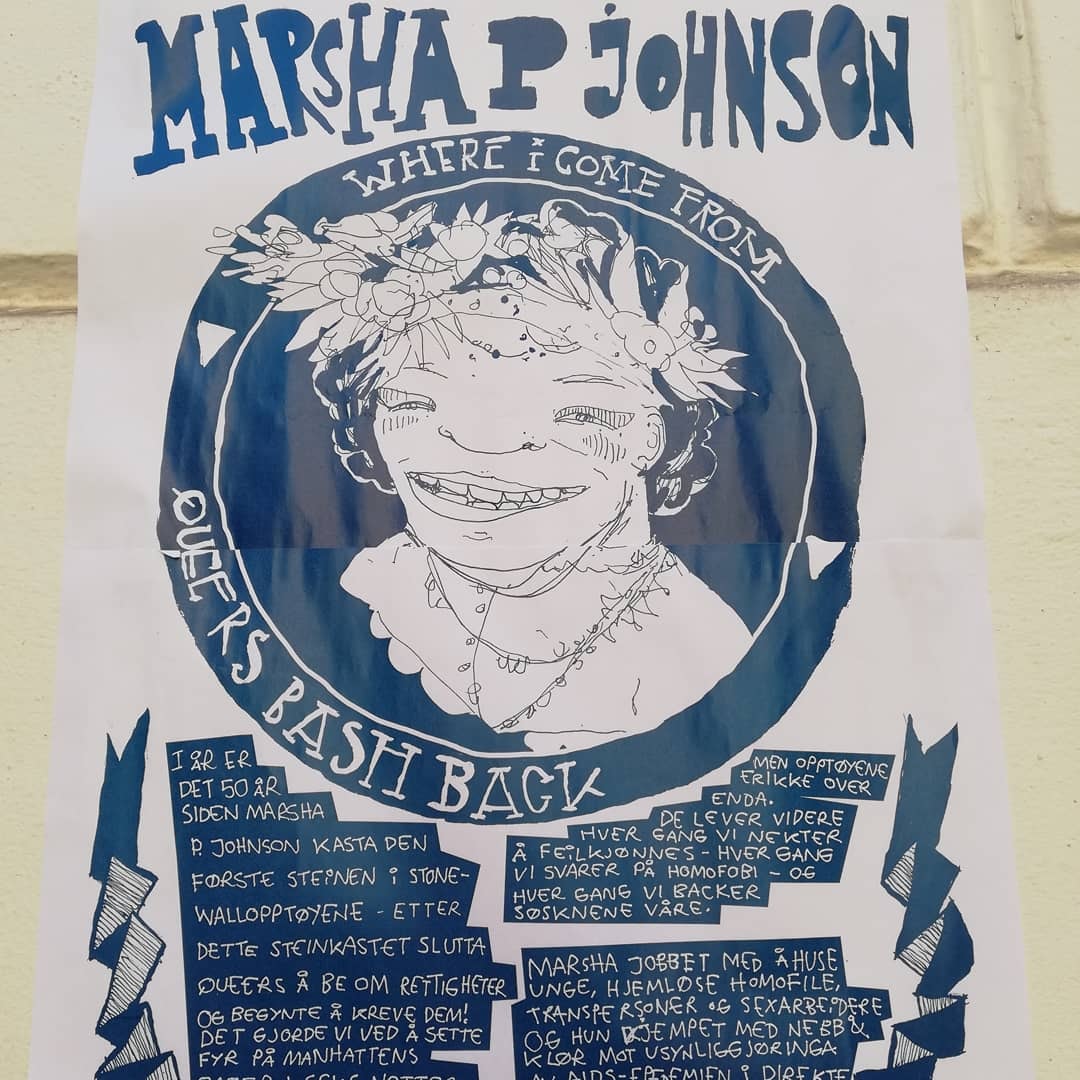 MARSHA P JOHNSON
WHERE i COME FROM
QUEERS BASH BACK
I ÅR ER
DET 50 ÅR
SIDEN MARSHA
P. JOHNSON KASTA DEN
FØRSTE STEINEN i STONE-
WALLOPPTØYENE - ETTER
DETTE STEINKASTET SLUTTA
QUEERS Å BE OM RETTIGHETER
OG BEGYNTE Å KREVE DEM!
DET GJORDE VI VED Å SETTE
FYR PÅ MANHATTENS
MEN OPPTØYENE
ER IKKE OVER
ENDA.
DE LEVER VIDERE
HVER GANG VI NEKTER
Å FEILKJØNNES - HVER GANG
VI SVARER PÅ HOMOFOBI - OG
HVER GANG VI BACKER
SØSKNENE VÅRE.
MARSHA JOBBET MED Å HUSE
UNGE, HJEMLØSE HOMOFILE,
TRANSPERSONER OG SEXARBEIDERE
OG HUN KJEMPET MED NEBB &
KLØR MOT USYNLIGGJØRINGA
AV AIDS-EPEDMIEN i DIREKTE